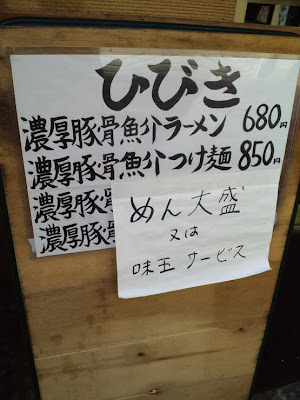 ひびき
濃厚豚骨魚介ラーメン 680円
濃厚豚骨魚介つけ麺 850円
濃厚豚骨
濃厚豚骨
めん大盛
又は
味玉 サービス